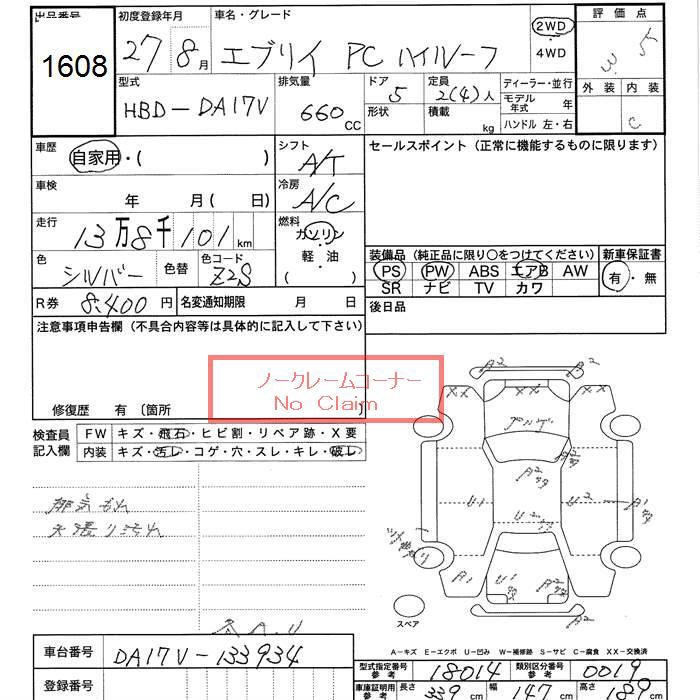 出品番号 初度登録年月 車名・グレード 評価点
1608 27 8月 エブリイ PC ハイルーフ 2WD 4WD 3 5
型式 排気量 ドア 定員 ディーラー・並行 外装 内装
HBD-DA17V 660CC 5 2(4)人 モデル年式 年
形状 積載 kg ハンドル 左・右 C
車歴 自家用・( ) シフト A/T セールスポイント（正常に機能するものに限ります）
車検 年 月 ( 日) 冷房 A/C
走行 13万8千101km 燃料 ガソリン 軽・油 ( )
色 シルバー 色替 色コード Z2S
装備品（純正品に限り○をつけてください） 新車保証書
PS PW ABS エアB AW 有・無
SR ナビ TV カワ
R券 8,400円 名変通知期限 月 日 後日品
注意事項申告欄（不具合内容等は具体的に記入して下さい）
ノークレームコーナー
No Claim
修復歴 有〔箇所
検査員記入欄 FW キズ・飛石・ヒビ割・リペア跡・X要
内装 キズ・汚レ・コゲ・穴・スレ・キレ・破レ
排気もれ
A2 A2
XX XX
A2
U1 U2 A1
U2
A1 U1 A2
A2
スペア
A-キズ E-エクボ U-凹み W-補修跡 S-サビ C-腐食 XX-交換済
車台番号 DA17V-133934
型式指定番号 参考 18014 類別区分番号 参考 0019
登録番号 車庫証明用 参考 長さ 339cm 幅 147cm 高さ 189cm